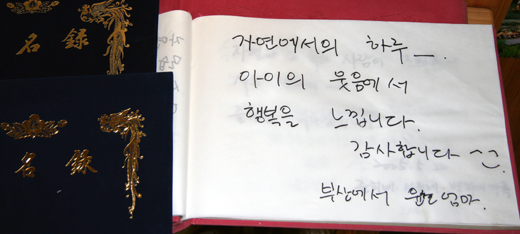 名錄
名錄
자연에서의 하루 _.
아이의 웃음에서
행복을 느낍니다.
감사합니다
부산에서 엄마.